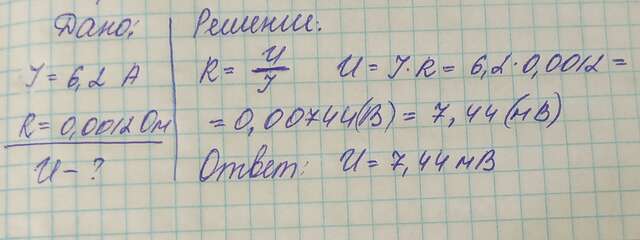 Дано:
I = 6,2 А
R = 0,0012 Ом
U - ?
Решение:
R = U/I U = I·R = 6,2·0,0012 =
= 0,00744 (В) = 7,44 (мВ)
Ответ: U = 7,44 мВ